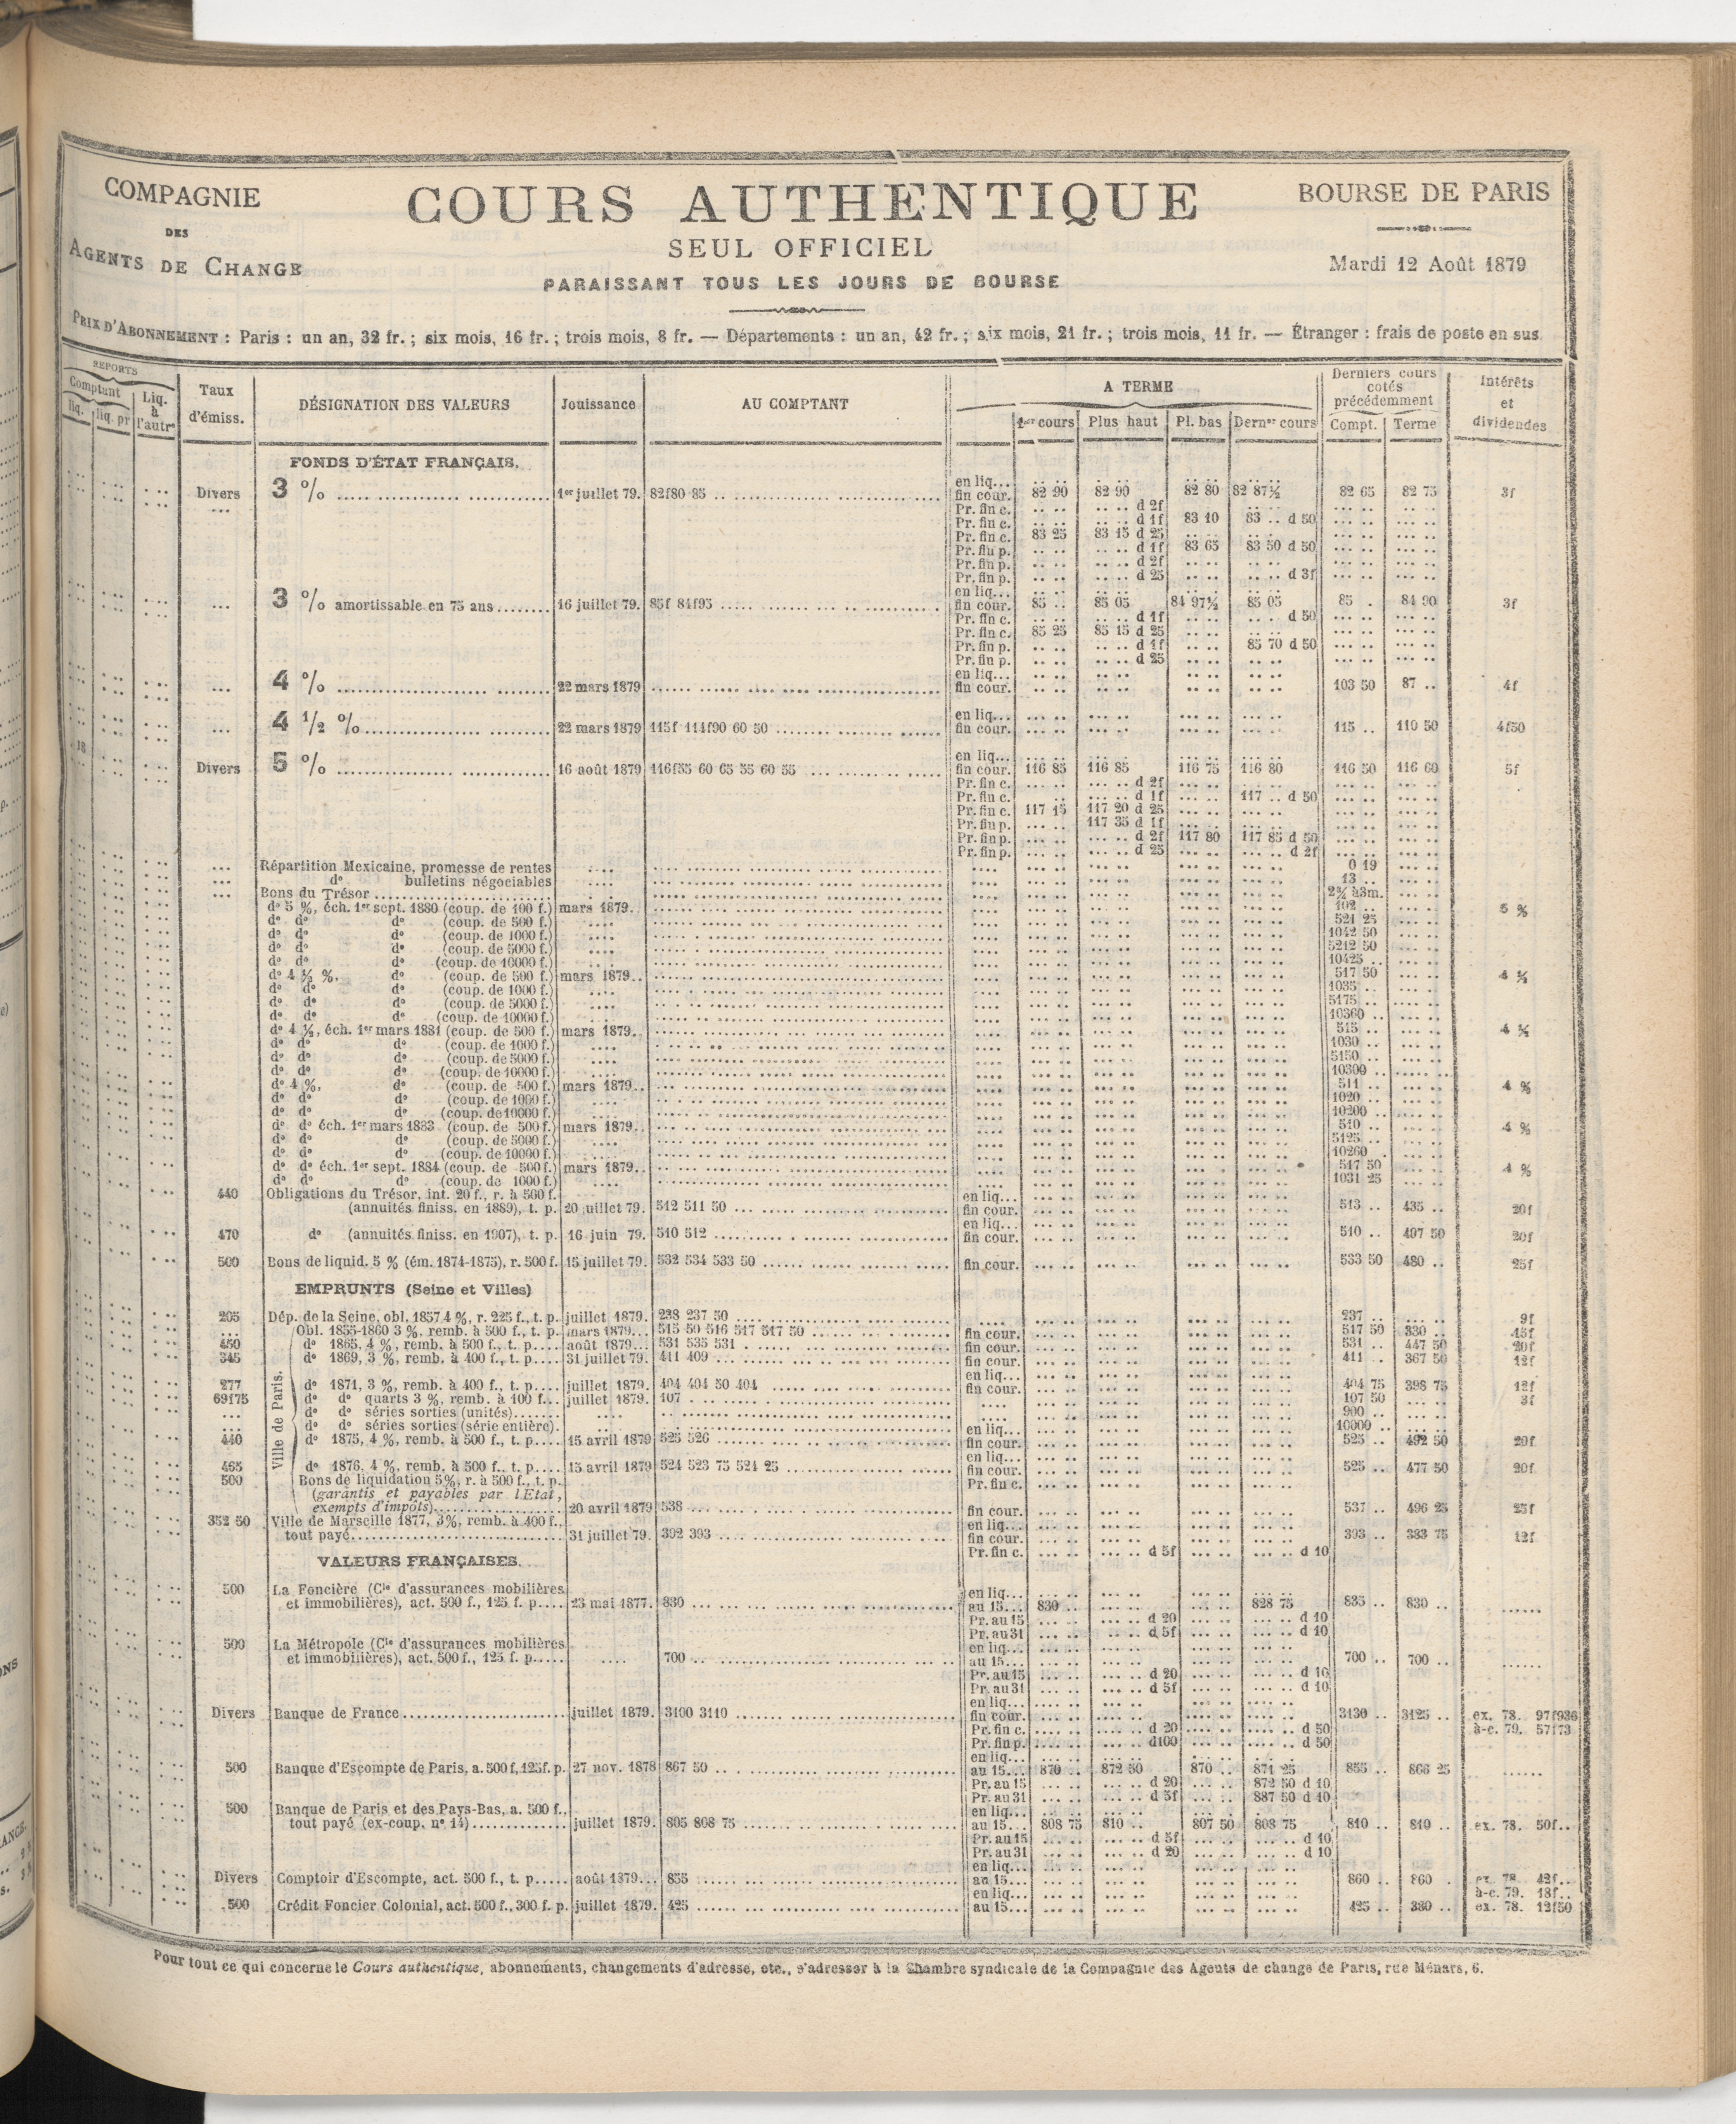 COMPAGNIE
DES
AGENTS DE CHANGE
COURS AUTHENTIQUE
SEUL OFFICIEL
PARAISSANT TOUS LES JOURS DE BOURSE
BOURSE DE PARIS
Mardi 12 Août 1879
PRIX D'ABONNEMENT : Paris : un an, 32 fr. ; six mois, 16 fr. ; trois mois, 8 fr. — Départements : un an, 42 fr. ; six mois, 21 fr. ; trois mois, 11 fr. — Étranger : frais de poste en sus
REPORTS
Comptant
liq. liq. pr
Liq. à l'autre
Taux d'émiss.
DÉSIGNATION DES VALEURS
Jouissance
AU COMPTANT
A TERME
1er cours Plus haut Pl. bas Dernier cours
Derniers cours cotés précédemment
Compt. Terme
Intérêts et dividendes
FONDS D'ÉTAT FRANÇAIS.
en liq...
Divers 3 % 1er juillet 79. 82f80 85 fin cour. 82 90 82 90 82 80 82 87½ 82 65 82 75 3f
Pr. fin c. d 2f
Pr. fin c. d 1f 83 10 83 .. d 50
Pr. fin c. 83 25 83 15 d 25
Pr. fin p. d 1f 83 65 83 50 d 50
Pr. fin p. d 2f
Pr. fin p. d 25 d 3f
en liq...
... 3 % amortissable en 75 ans 16 juillet 79. 85f 84f95 fin cour. 85 .. 85 05 84 97½ 85 05 85 . 84 90 3f
Pr. fin c. d 1f d 50
Pr. fin c. 85 25 85 15 d 25
Pr. fin p. d 1f 85 70 d 50
Pr. fin p. d 25
en liq...
... 4 % 22 mars 1879 fin cour. 103 50 87 .. 4f
en liq...
... 4 1/2 % 22 mars 1879 115f 114f90 60 50 fin cour. 115 .. 110 50 4f50
en liq...
18 Divers 5 % 16 août 1879 116f55 60 65 55 60 55 fin cour. 116 85 116 85 116 75 116 80 116 50 116 60 5f
Pr. fin c. d 2f
Pr. fin c. d 1f 117 .. d 50
Pr. fin c. 117 15 117 20 d 25
Pr. fin p. 117 35 d 1f
Pr. fin p. d 2f 117 80 117 85 d 50
Pr. fin p. d 25 d 2f
Répartition Mexicaine, promesse de rentes 0 19
do bulletins négociables 13 ..
Bons du Trésor 2¾ à3m.
do 5 %, éch. 1er sept. 1880 (coup. de 100 f.) mars 1879. 102 .. 5 %
do do do (coup. de 500 f.) 521 25
do do do (coup. de 1000 f.) 1042 50
do do do (coup. de 5000 f.) 5212 50
do do do (coup. de 10000 f.) 10425 ..
do 4 ½ %, do (coup. de 500 f.) mars 1879.. 517 50 4 ½
do do do (coup. de 1000 f.) 1035 ..
do do do (coup. de 5000 f.) 5175 ..
do do do (coup. de 10000 f.) 10360 ..
do 4 ½, éch. 1er mars 1881 (coup. de 500 f.) mars 1879.. 515 .. 4 ½
do do do (coup. de 1000 f.) 1030 ..
do do do (coup. de 5000 f.) 5150 ..
do do do (coup. de 10000 f.) 10300 ..
do 4 %, do (coup. de 500 f.) mars 1879.. 511 .. 4 %
do do do (coup. de 1000 f.) 1020 ..
do do do (coup. de 10000 f.) 10200 ..
do do éch. 1er mars 1883 (coup. de 500 f.) mars 1879.. 510 .. 4 %
do do do (coup. de 5000 f.) 5125 ..
do do do (coup. de 10000 f.) 10260 ..
do do éch. 1er sept. 1884 (coup. de 500 f.) mars 1879.. 517 50 4 %
do do do (coup. de 1000 f.) 1031 25
440 Obligations du Trésor, int. 20 f., r. à 500 f. en liq...
(annuités finiss. en 1889), t. p. 20 juillet 79. 512 511 50 fin cour. 513 .. 435 .. 20f
en liq...
470 do (annuités finiss. en 1907), t. p. 16 juin 79. 510 512 fin cour. 510 .. 497 50 20f
500 Bons de liquid. 5 % (ém. 1874-1875), r. 500 f. 15 juillet 79. 532 534 533 50 fin cour. 533 50 480 .. 25f
EMPRUNTS (Seine et Villes)
205 Dép. de la Seine, obl. 1857 4 %, r. 225 f., t. p. juillet 1879. 238 237 50 237 .. 9f
Ville de Paris.
... Obl. 1855-1860 3 %, remb. à 500 f., t. p. mars 1879... 515 50 516 517 517 50 fin cour. 517 50 330 .. 15f
450 do 1865, 4 %, remb. à 500 f., t. p. août 1879... 531 535 531 fin cour. 531 .. 447 50 20f
345 do 1869, 3 %, remb. à 400 f., t. p. 31 juillet 79. 411 409 fin cour. 411 .. 367 50 12f
en liq...
277 do 1871, 3 %, remb. à 400 f., t. p. juillet 1879. 404 404 50 404 fin cour. 404 75 398 75 12f
69f75 do do quarts 3 %, remb. à 100 f. juillet 1879. 107 107 50 3f
... do do séries sorties (unités) 900 ..
... do do séries sorties (série entière) 10000 ..
en liq...
440 do 1875, 4 %, remb. à 500 f., t. p. 15 avril 1879 525 526 fin cour. 525 .. 492 50 20f
en liq...
465 do 1876, 4 %, remb. à 500 f., t. p. 15 avril 1879 524 523 75 524 25 fin cour. 525 .. 477 50 20f
500 Bons de liquidation 5 %, r. à 500 f., t. p. Pr. fin c.
(garantis et payables par l'Etat,
exempts d'impôts) 20 avril 1879 538 fin cour. 537 .. 496 25 25f
352 50 Ville de Marseille 1877, 3 %, remb. à 400 f., en liq...
tout payé 31 juillet 79. 392 393 fin cour. 393 .. 383 75 12f
Pr. fin c. d 5f d 10
VALEURS FRANÇAISES.
500 La Foncière (Cie d'assurances mobilières en liq...
et immobilières), act. 500 f., 125 f. p. 23 mai 1877. 830 au 15... 830 .. 828 75 835 .. 830 ..
Pr. au 15 d 20 d 10
Pr. au 31 d 5f d 10
500 La Métropole (Cie d'assurances mobilières en liq...
et immobilières), act. 500 f., 125 f. p. 700 au 15... 700 .. 700 ..
Pr. au 15 d 20 d 10
Pr. au 31 d 5f d 10
en liq...
Divers Banque de France juillet 1879. 3100 3110 fin cour. 3130 .. 3125 .. ex. 78. 97f936
Pr. fin c. d 20 d 50 à-c. 79. 57f73
Pr. fin p. d100 d 50
en liq...
500 Banque d'Escompte de Paris, a. 500 f, 125f. p. 27 nov. 1878 867 50 au 15... 870 .. 872 50 870 .. 871 25 855 .. 866 25
Pr. au 15 d 20 872 50 d 10
Pr. au 31 d 5f 887 50 d 10
500 Banque de Paris et des Pays-Bas, a. 500 f., en liq...
tout payé (ex-coup. no 14) juillet 1879. 805 808 75 au 15... 808 75 810 .. 807 50 808 75 810 .. 810 .. ex. 78. 50f..
Pr. au 15 d 5f d 10
Pr. au 31 d 20 d 10
en liq...
Divers Comptoir d'Escompte, act. 500 f., t. p. août 1879... 855 au 15... 860 .. 860 . ex. 78. 42f..
en liq... à-c. 79. 18f..
500 Crédit Foncier Colonial, act. 500 f., 300 f. p. juillet 1879. 425 au 15... 425 .. 380 .. ex. 78. 12f50
Pour tout ce qui concerne le Cours authentique, abonnements, changements d'adresse, etc., s'adresser à la Chambre syndicale de la Compagnie des Agents de change de Paris, rue Ménars, 6.